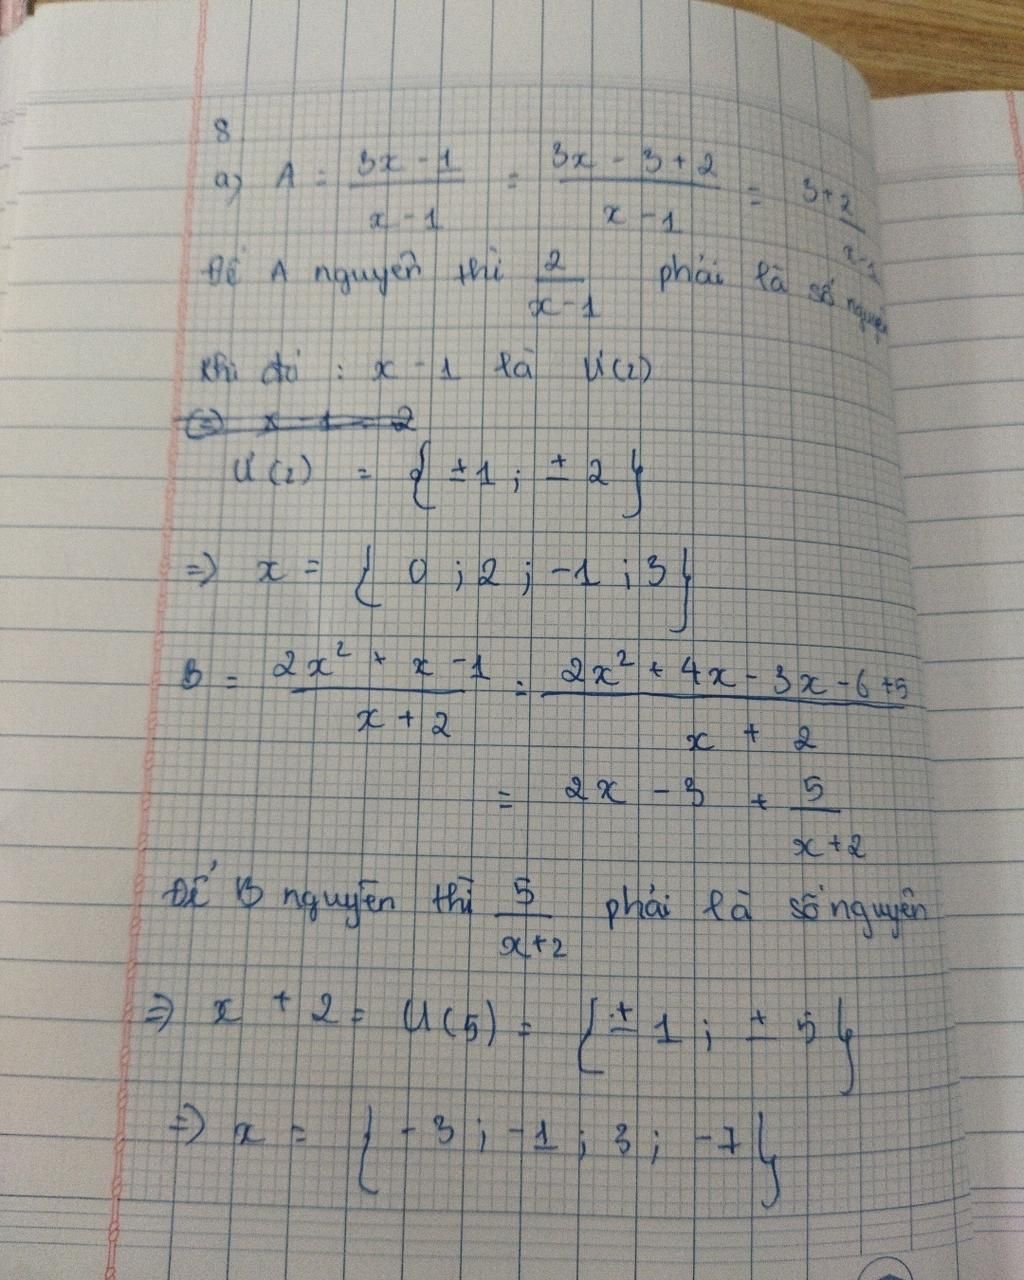 8
a) A = \frac{3x - 1}{x - 1} = \frac{3x - 3 + 2}{x - 1} = 3 + \frac{2}{x - 1}
Để A nguyên thì \frac{2}{x - 1} phải là số nguyên
Khi đó : x - 1 là Ư(2)
(=) x - 1 = 2
Ư(2) = { ±1 ; ± 2 }
=> x = { 0 ; 2 ; -1 ; 3 }
B = \frac{2x² + x - 1}{x + 2} = \frac{2x² + 4x - 3x - 6 + 5}{x + 2}
= 2x - 3 + \frac{5}{x + 2}
Để B nguyên thì \frac{5}{x + 2} phải là số nguyên
=> x + 2 = Ư(5) = { ± 1 ; ± 5 }
=> x = { -3 ; -1 ; 3 ; -7 }